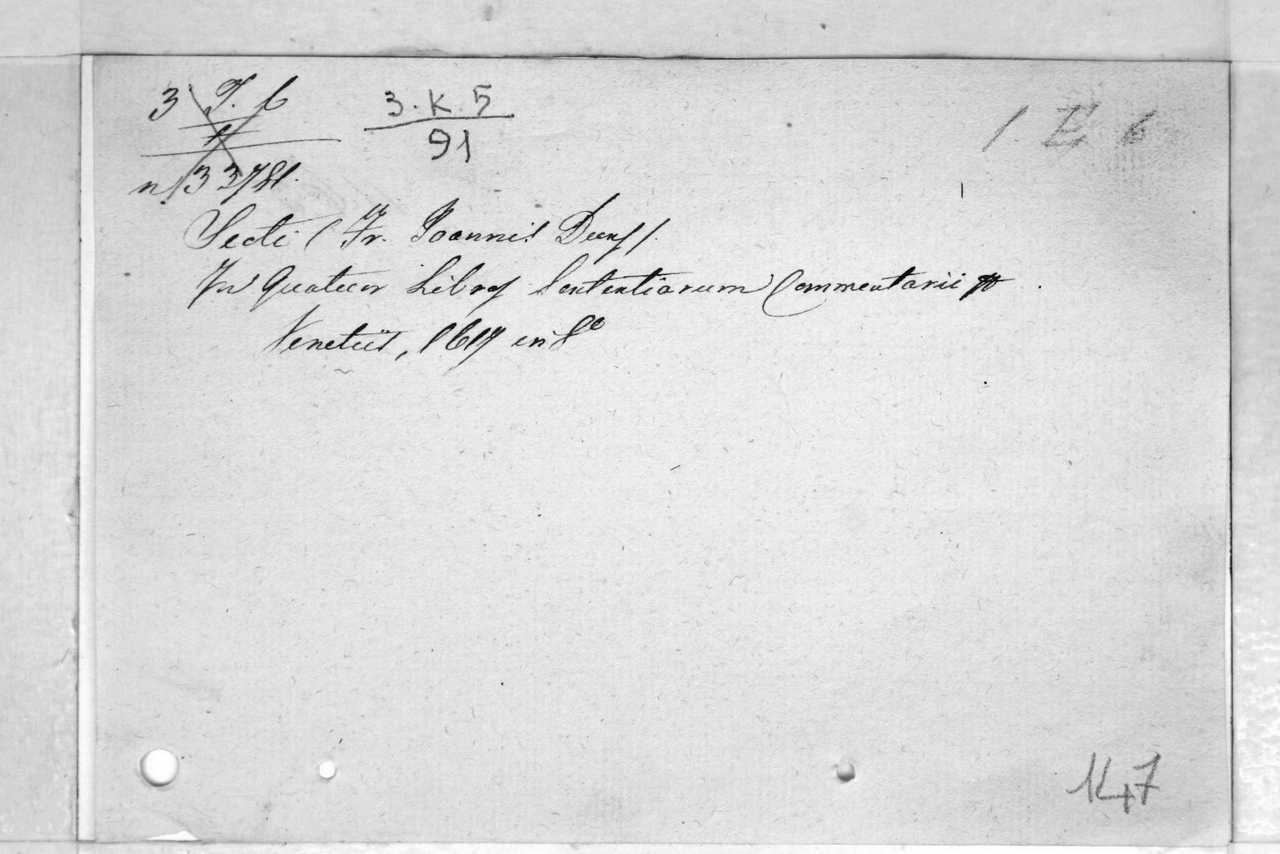 3 T. 6
3.K.5
1 E 6
1
91
n/33781.
Scoti (Fr. Joannis Duns).
In Quatuor Libros Sententiarum Commentarii
Venetiis, 1617 in 8º
147